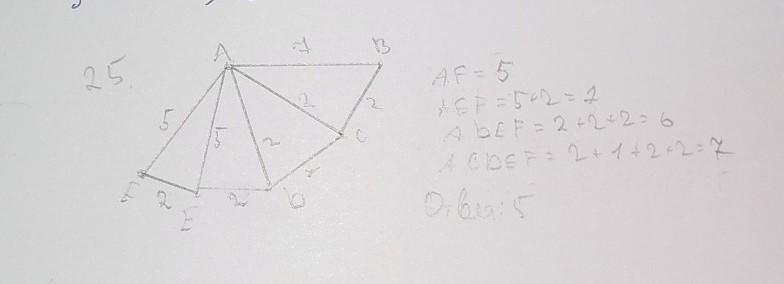 25.
A
1
B
5
5
2
2
2
C
1
F
2
E
2
D
AF = 5
AEF = 5+2=7
ADEF = 2+2+2=6
ACDEF = 2+1+2+2=7
Ответ: 5